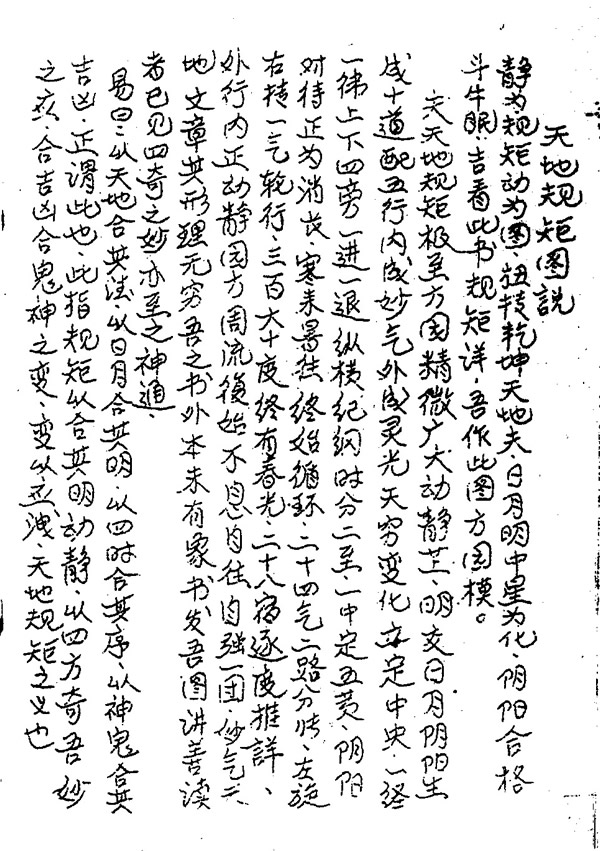 天地规矩图説
静为规矩动为图、扭转乾坤天地夫、日月明中星为化、阴阳合格
斗牛眠、吉看此书规矩详、吾作此图方园模。
夫天地规矩极至方园精微广大动静廿一、明交日月阴阳生
成十道配五行内成妙气外成灵光天穷变化立定中央、一经
一纬上下四旁一进一退纵横纪纲时分二至、一中定五黄、阴阳
对待正为消长、寒来暑往终始循环、二十四气二路分张、左旋
右转一气轮行、三百六十度终有春光、二十八宿逐度推詳、
外行内正动静园方周流復始不息自往自强一团妙气天
地文章其形理无穷吾之书外本未有象、书发吾图讲善读
者已见四奇之妙、亦至之神通、
易曰、以天地合其法、以日月合其明、以四时合其序、以神鬼合其
吉凶、正谓此也、此指规矩以合其明动静、以四方奇吾妙
之、合吉凶合鬼神之变、变以、洩、天地规矩之义也